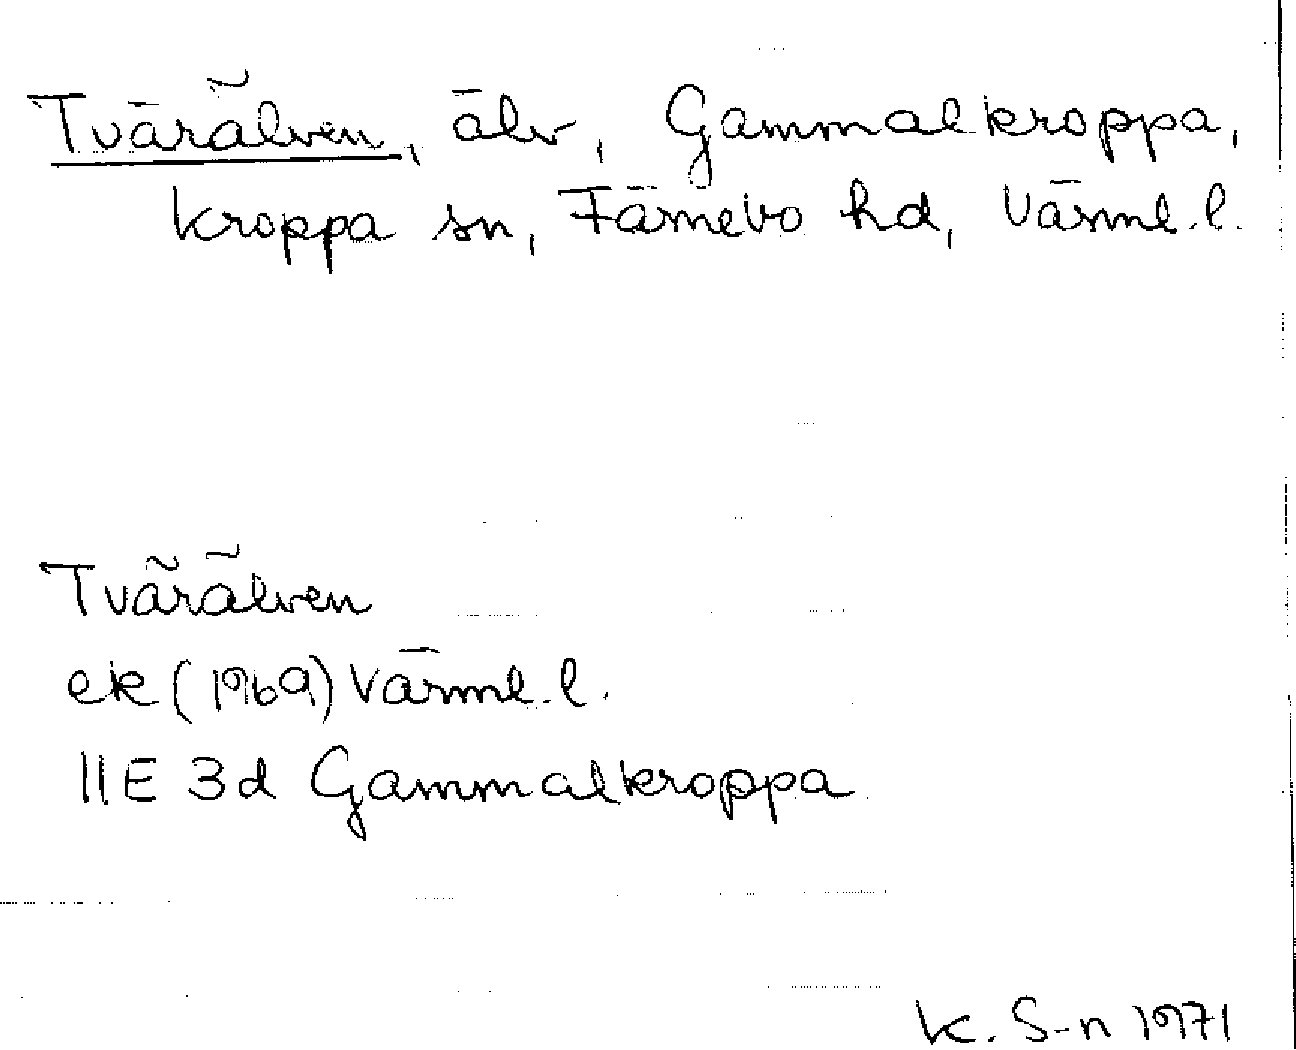 Tvärälven, älv, Gammalkroppa,
Kroppa sn, Färnebo hd, Värml. l.
Tvärälven
ek (1969) Värml. l.
11E 3d Gammalkroppa
K. S-n 1971